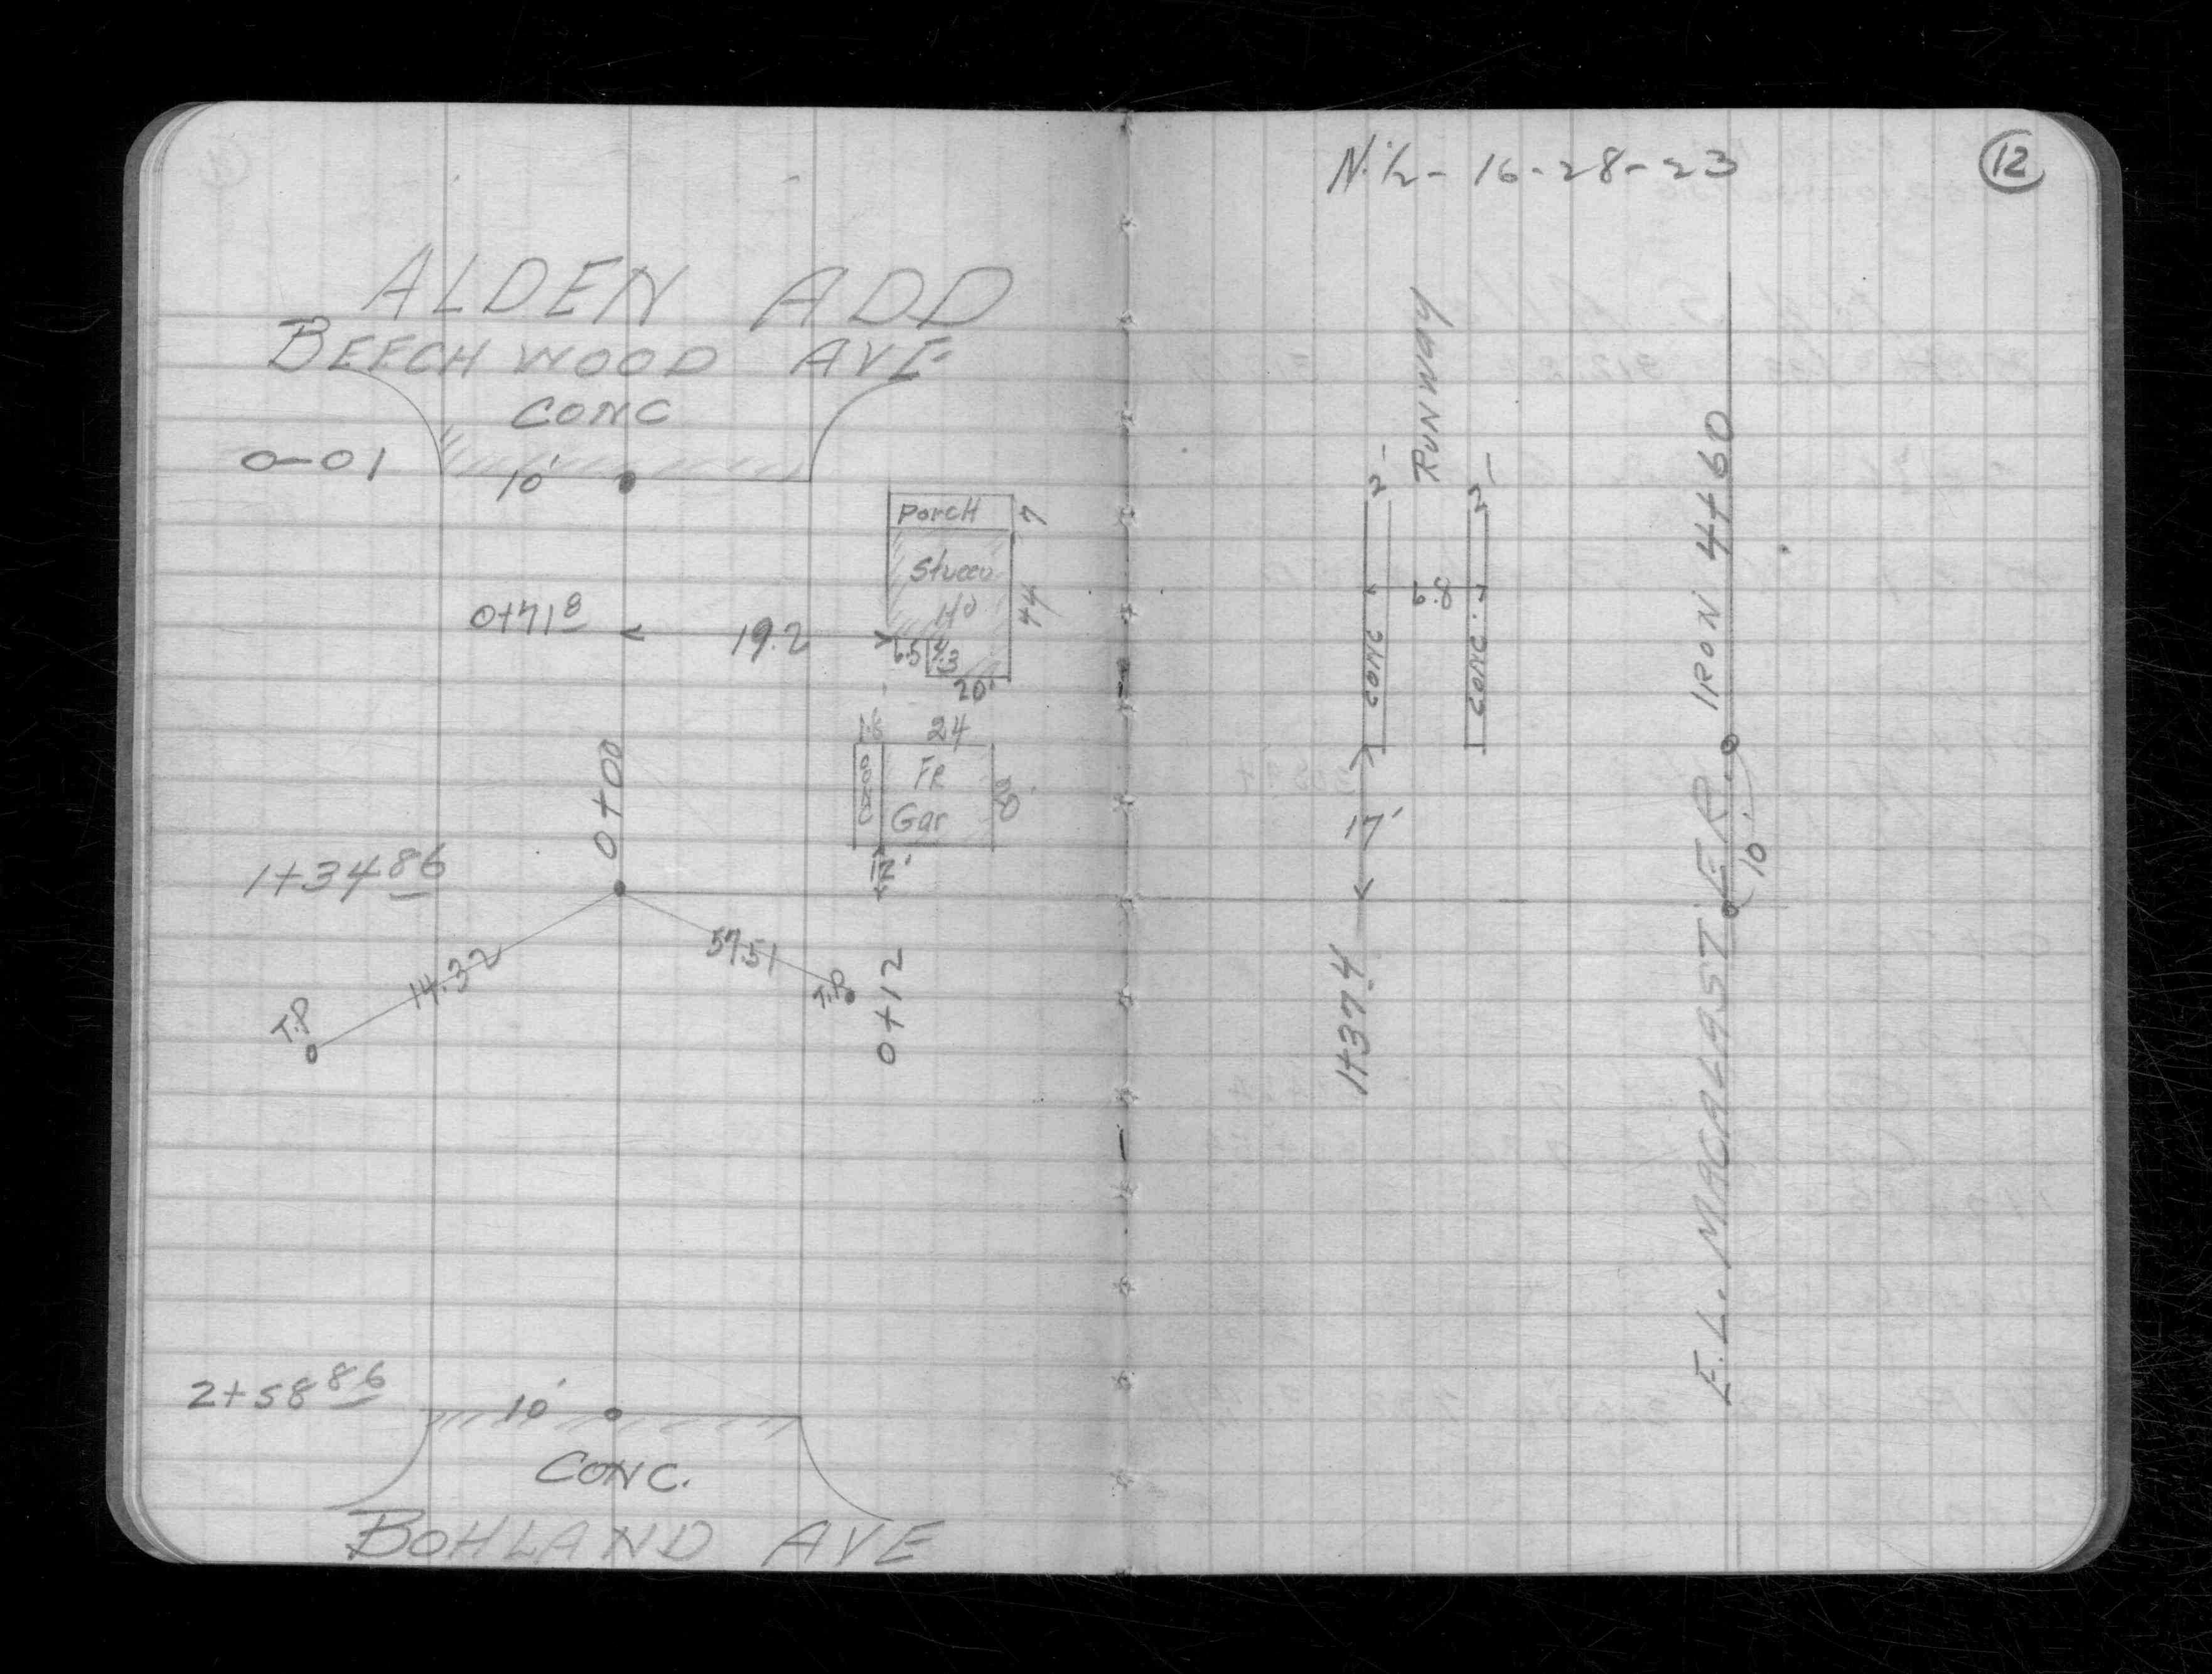 ALDEN ADD
BEECHWOOD AVE
CONC
0-01
10'
Porch
7
Stucco
Ho
44
0+71 8
19.2
6.5
4.3
20'
1.6
24
CONC
Fr
Gar
12'
0+00
1+34 86
14.32
57.51
T.P.
T.P
0+12
2+58 86
10'
CONC.
BOHLAND AVE
N.½- 16-28-23
12
RUNWAY
2'
2'
6.8
CONC
CONC.
17'
1+37.4
IRON 4+60
10.
E.L. MACALASTER